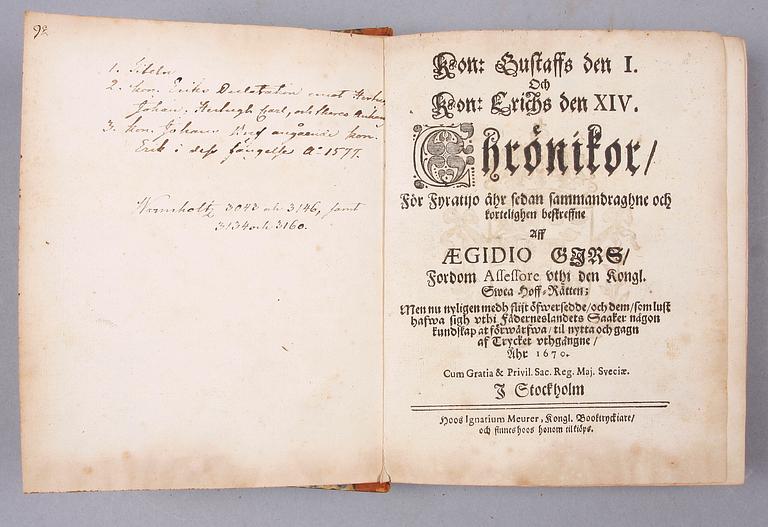 92
1. Titeln
2. Kon. Eriks Declaration emot Hertig
Johan. Hertigh Carl, och
3. Kon. Johans angående Kon.
Erik i dess fängelse Ao 1577.
Warmholtz 3042 och 3146, samt
3134 och 3160.
Kon: Gustaffs den I.
Och
Kon: Erichs den XIV.
Chrönikor/
För Fyratijo åhr sedan sammandraghne och
kortelighen beskreffne
Aff
ÆGIDIO GIRS/
Fordom Assessore vthi den Kongl.
Swea Hoff-Rätten;
Men nu nyligen medh flijt öfwersedde/och dem/som lust
hafwa sigh vthi Fäderneslandets Saaker någon
kundskap at förwärfwa/ til nytta och gagn
af Trycket vthgångne/
Åhr 1670.
Cum Gratia & Privil. Sac. Reg. Maj. Sveciæ.
J Stockholm
Hoos Ignatium Meurer, Kongl. Booktryckiare/
och finnes hoos honom til kiöps.